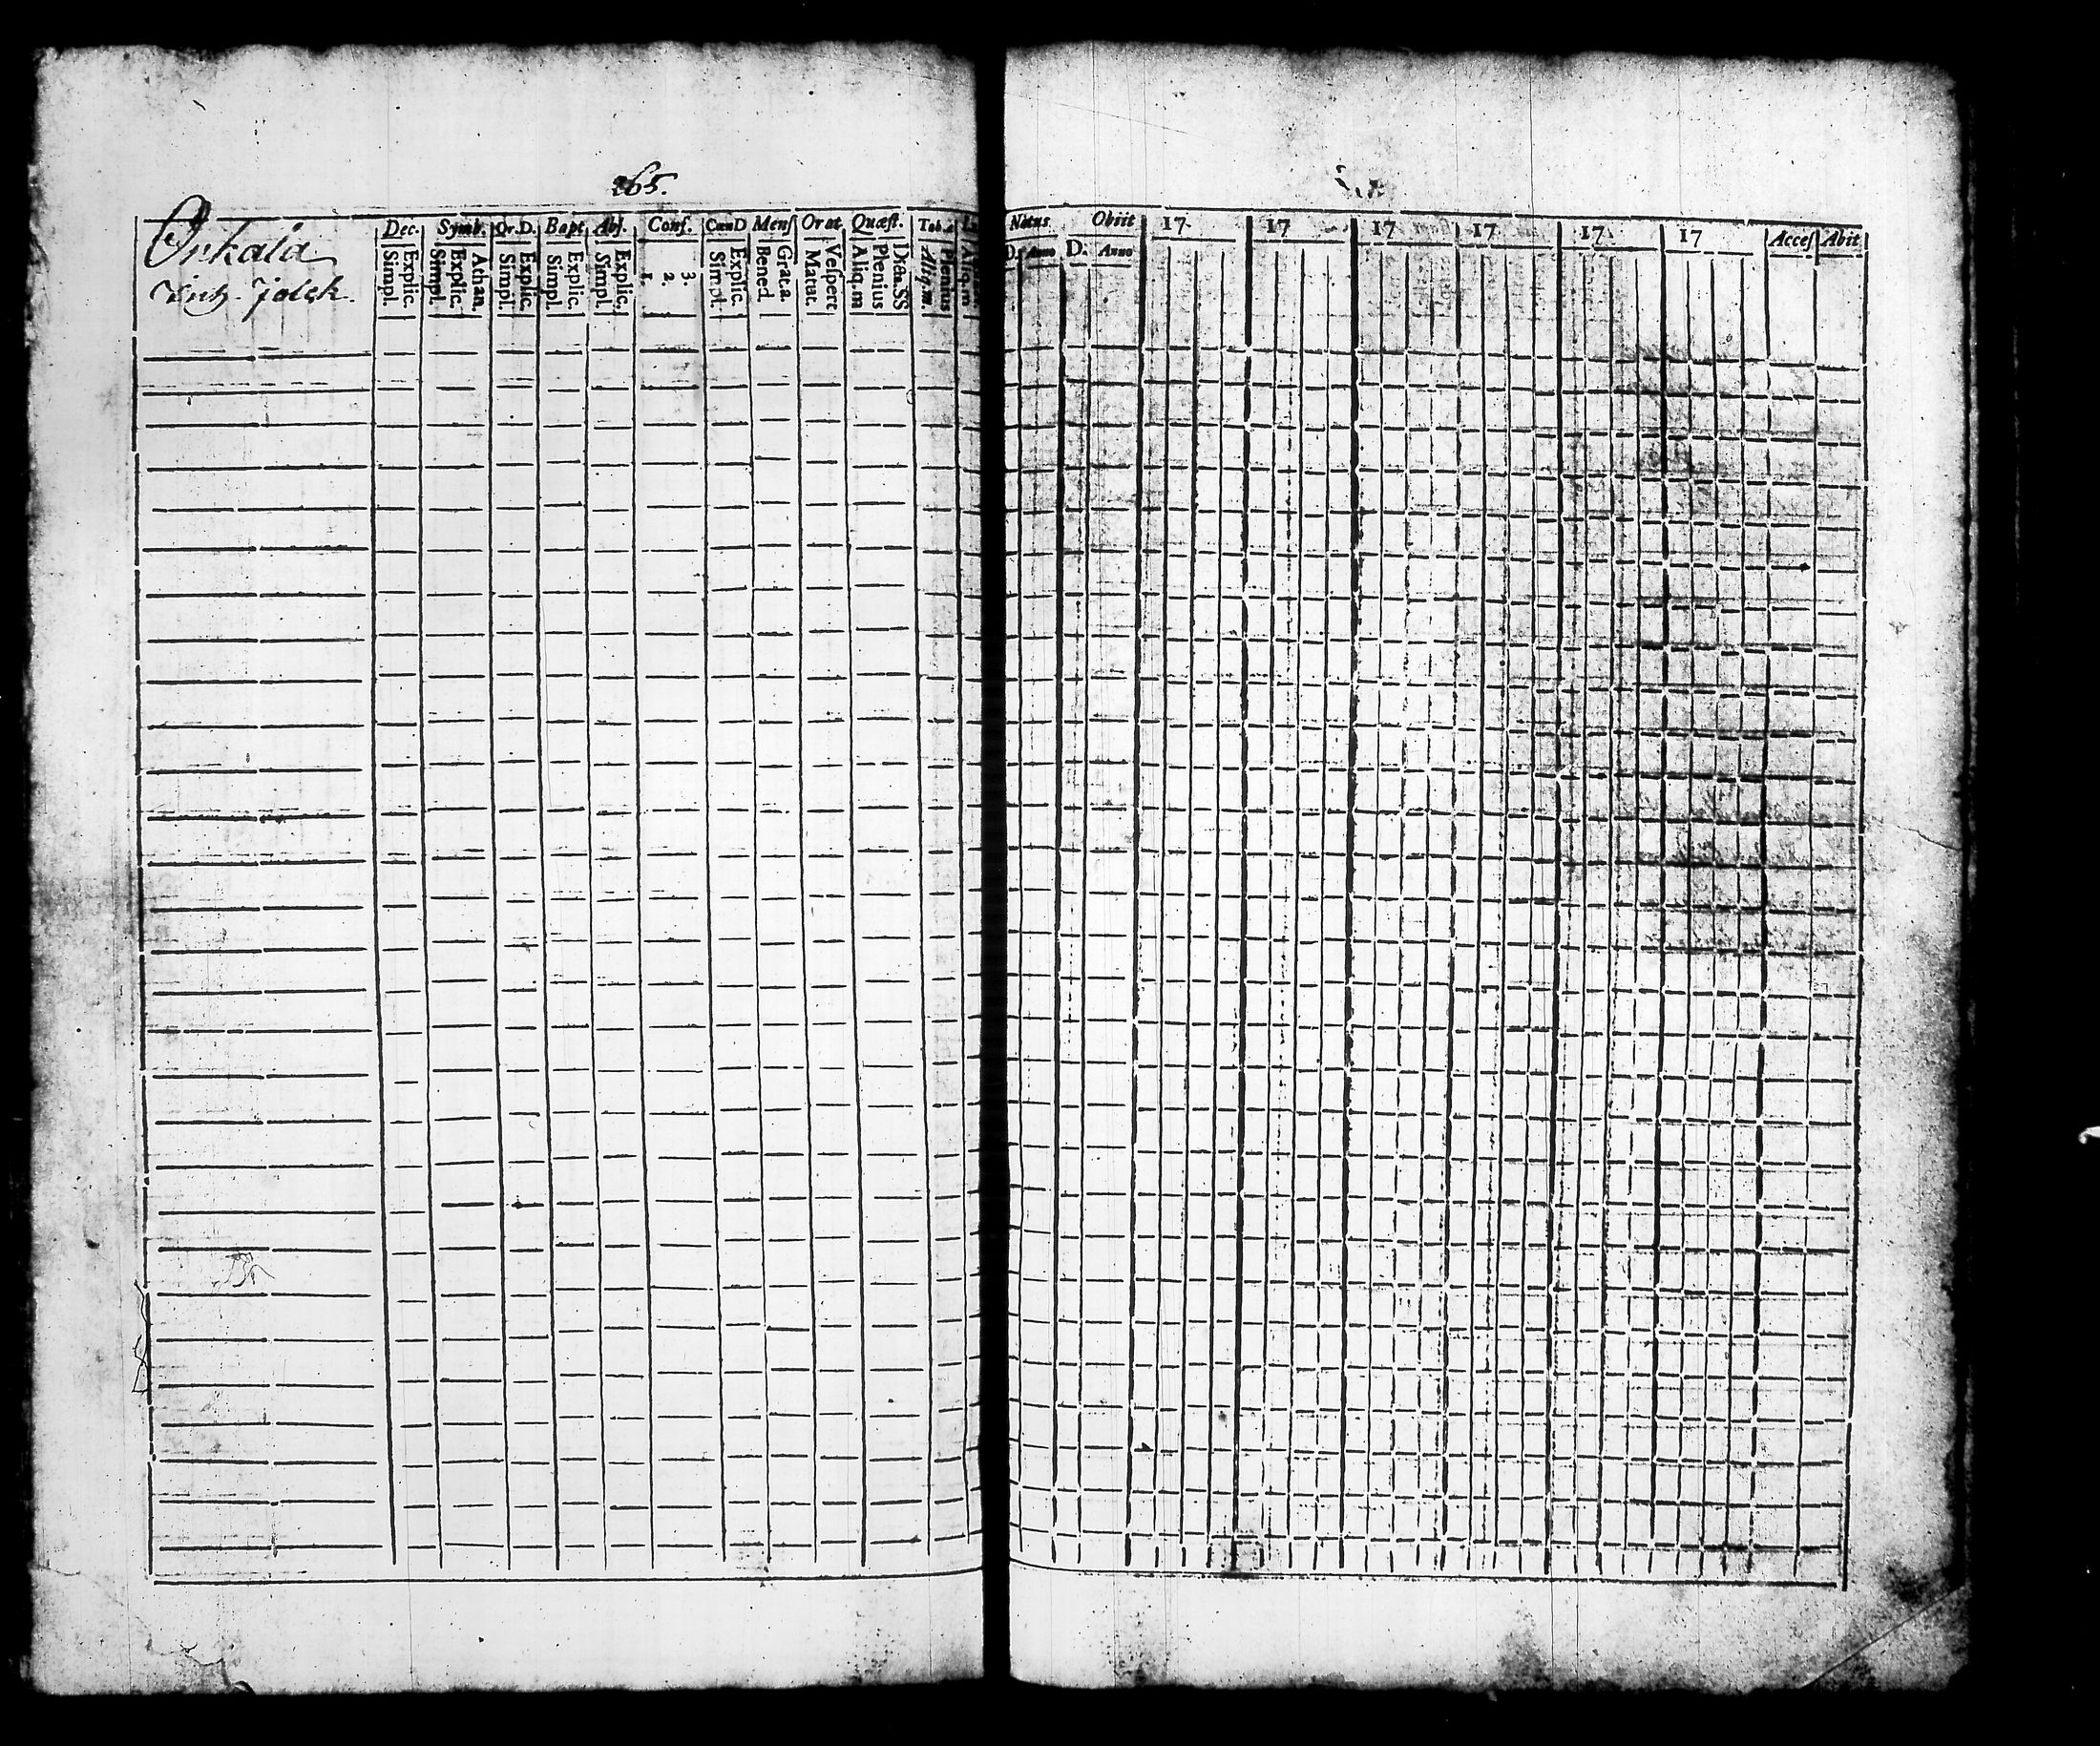 265.
Onkala
Inh. folck.
Dec. Symb. Or.D. Bapt Abs. Conf. CœnD Menſ Orat Quæſt. Tab.
Explic. Simpl. Athan. Explic. Simpl. Explic. Simpl. Explic. Simpl. Explic. Simpl. 3. 2. 1. Explic. Simpl. Grat.a. Bened. Veſpert Matut. Dicta.SS Plenius Aliq.m Plenius Aliq.m. Aliq.m
Natus Obiit 17 17 17 17 17 17 Acceſ Abit
D. Anno D. Anno